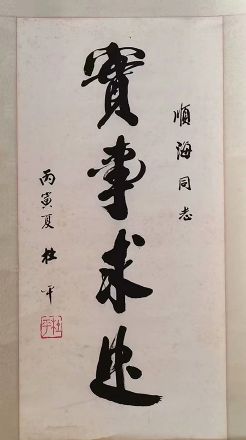 順海同志
實事求是
丙寅夏 杜平
杜平